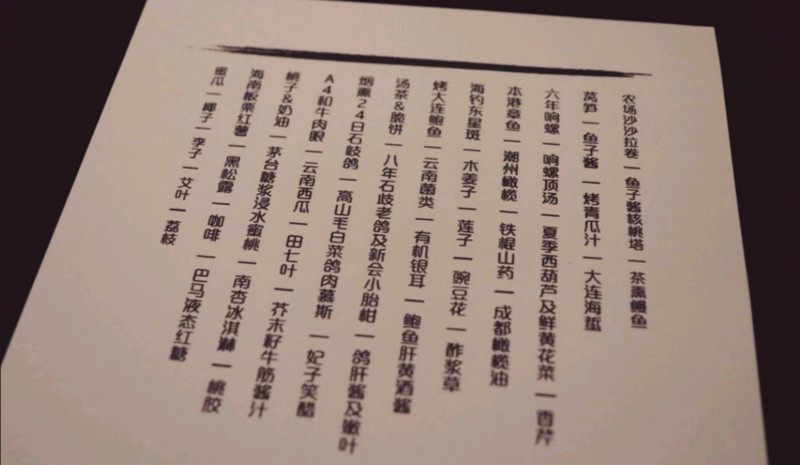 农场沙沙拉卷 | 鱼子酱核桃塔 | 茶熏鳗鱼
莴笋 | 鱼子酱 | 烤青瓜汁 | 大连海蜇
六年响螺 | 响螺顶汤 | 夏季西葫芦及鲜黄花菜 | 香芹
本港章鱼 | 潮州橄榄 | 铁棍山药 | 成都橄榄油
海钓东星斑 | 木姜子 | 莲子 | 豌豆花 | 酢浆草
烤大连鲍鱼 | 云南菌类 | 有机银耳 | 鲍鱼肝黄酒酱
汤茶&脆饼 | 八年石歧老鸽及新会小胎柑 | 鸽肝酱及嫩叶
烟熏24日石岐鸽 | 高山毛白菜鸽肉慕斯 | 妃子笑醋
A4和牛肉眼 | 云南西瓜 | 田七叶 | 芥末籽牛筋酱汁
桃子&奶油 | 茅台糖浆浸水蜜桃 | 南杏冰淇淋 | 桃胶
海南板栗红薯 | 黑松露 | 咖啡 | 巴马液态红糖
蜜瓜 | 椰子 | 李子 | 艾叶 | 荔枝